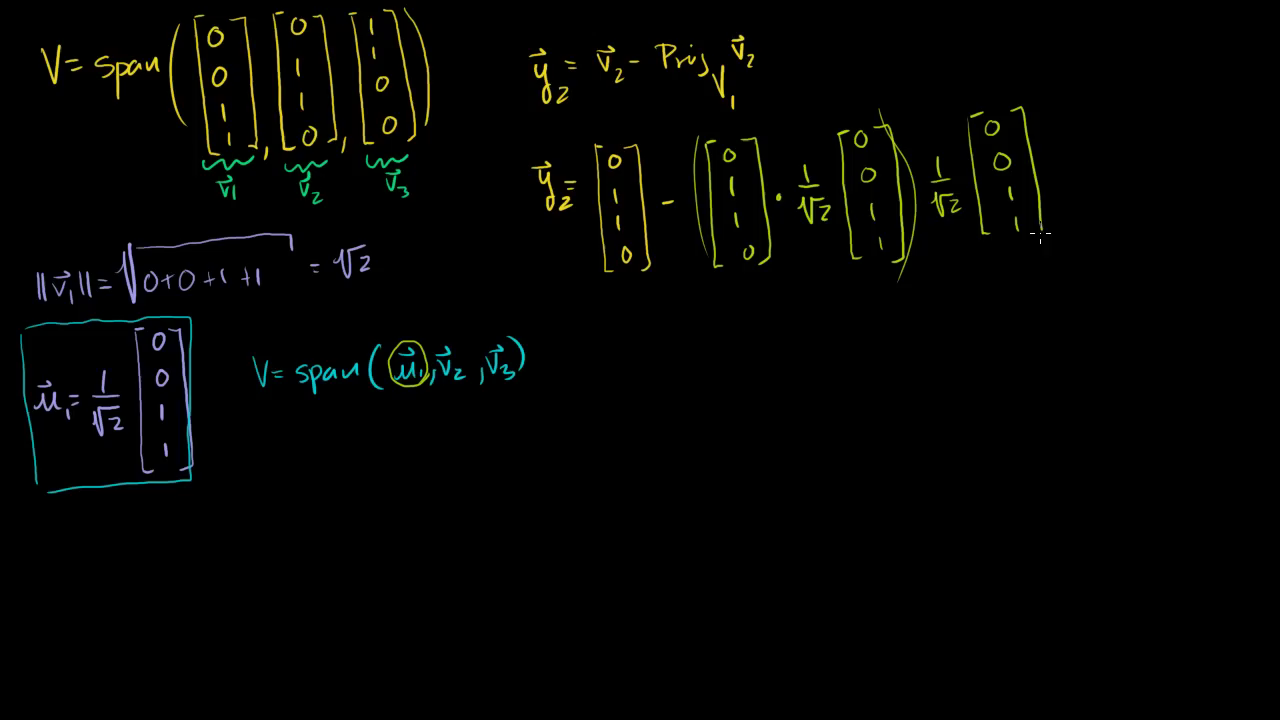 V = span([0 0 1 1], [0 1 1 0], [1 1 0 0])
v⃗₁ v⃗₂ v⃗₃
||v⃗₁|| = √(0+0+1+1) = √2
u⃗₁ = 1/√2 [0 0 1 1]
V = span(u⃗₁, v⃗₂, v⃗₃)
y⃗₂ = v⃗₂ - Proj_V₁ v⃗₂
y⃗₂ = [0 1 1 0] - ([0 1 1 0] · 1/√2 [0 0 1 1]) 1/√2 [0 0 1 1]